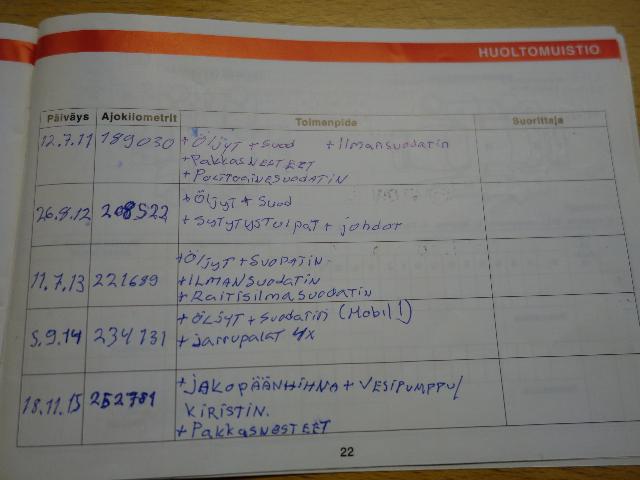 HUOLTOMUISTIO
Päiväys Ajokilometrit Toimenpide Suorittaja
12.7.11 189030 + Öljyt + Suod + Ilmansuodatin
+ Pakkasnesteet
+ Polttoainesuodatin
26.9.12 208522 + Öljyt + Suod
+ Sytytystulpat + johdot
11.7.13 221689 + Öljyt + Suodatin
+ ILMANSuodatin
+ Raitisilmasuodatin
5.9.14 234131 + ÖLJYT + Suodatin (Mobil 1)
+ Jarrupalat 4x
18.11.15 252781 + JAKOPÄÄNHIHNA + VESIPUMPPU/
KIRISTIN.
+ Pakkasnesteet
22